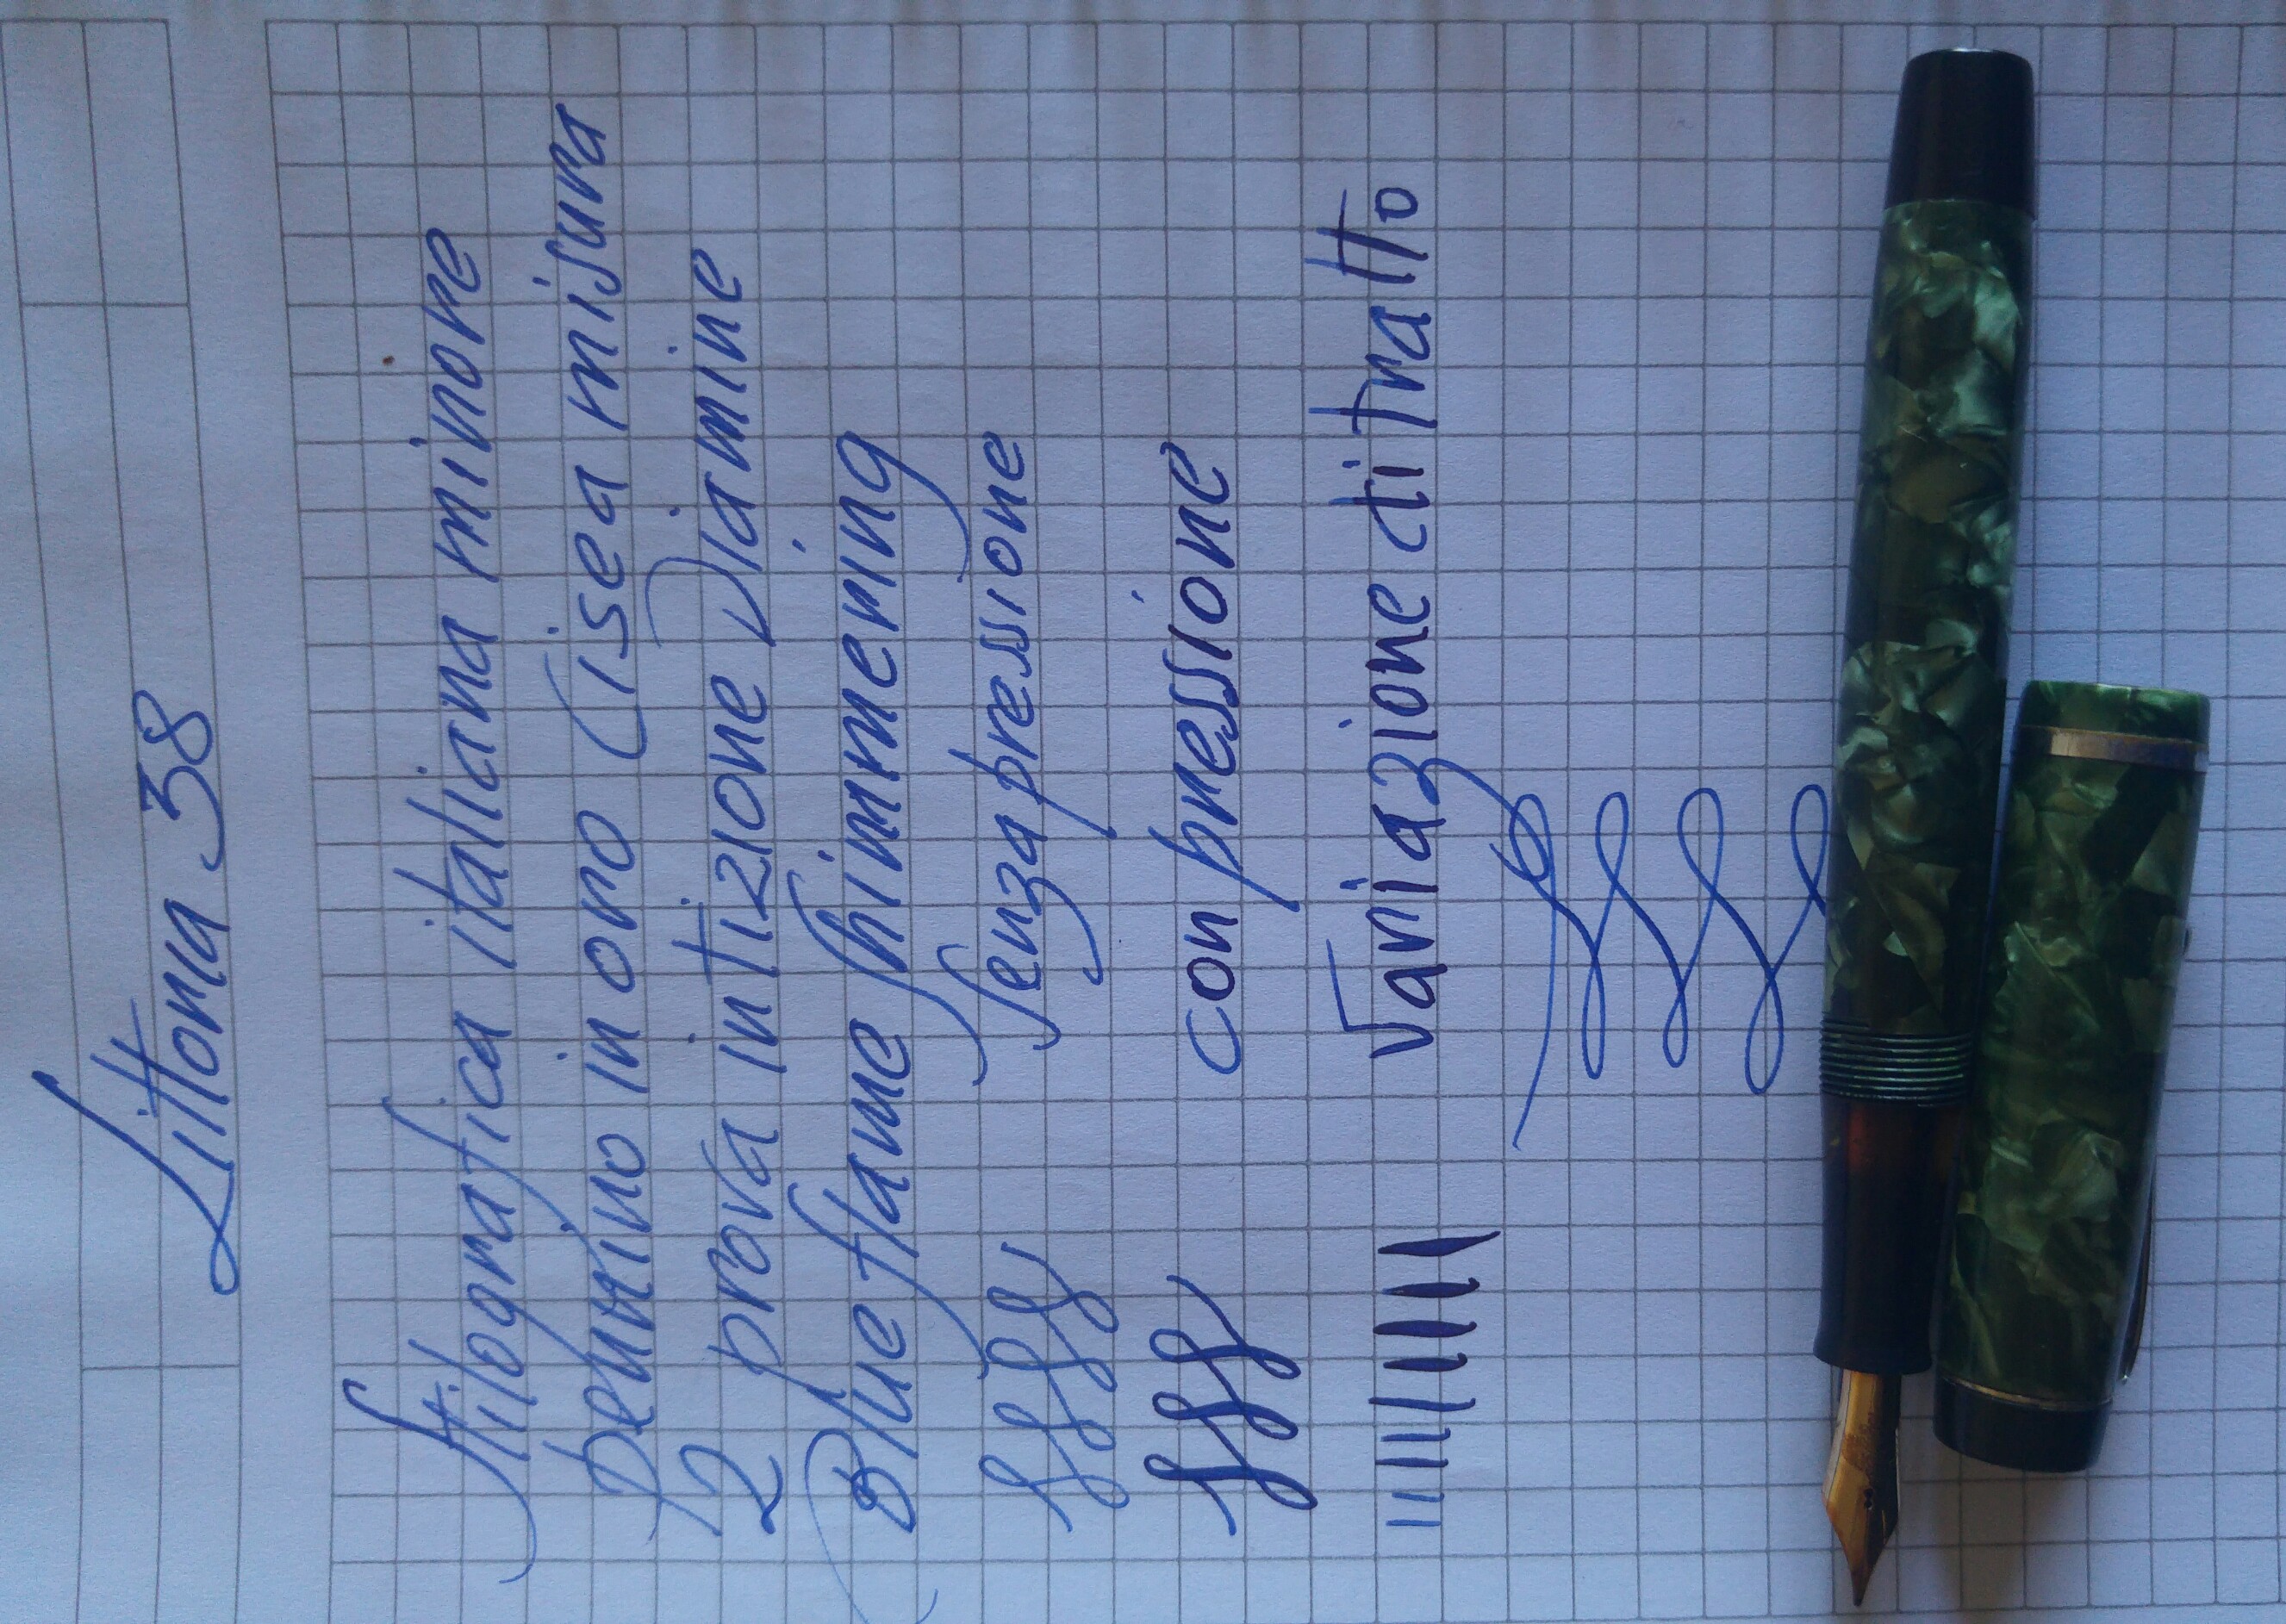 Littoria 38
Stilografica italiana minore
Pennino in oro Cisea misura
12 prova in tizione Diamine
Blue flame Shimmering
Senza pressione
con pressione
Variazione di tratto